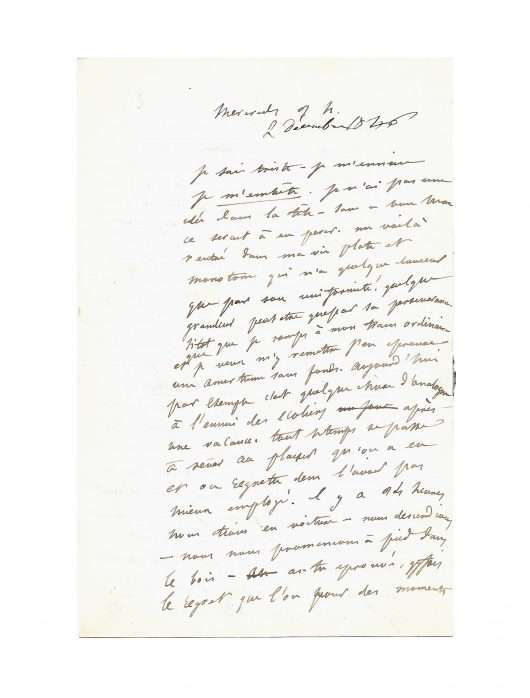 Mercredi 9 h.
2 Décembre 1846
Je suis triste – je m'ennuie
Je m'embête. Je n'ai pas une
idée dans la tête –
ce serait à en me voilà
rentré dans ma vie plate et
monotone qui n'a quelque
que par son uniformité, quelque
grandeur peut-être que par sa persévérance
sitôt que je romps à mon train ordinaire
et que je veux m'y remettre j'en éprouve
une amertume sans fonds. Aujourd'hui
par exemple c'est quelque chose d'analogue
à l'ennui des écoliers après
une vacance. tout le temps se passe
à rêver au plaisir qu'on a eu
et on regrette de ne l'avoir pas
mieux employé. il y a 24 heures
nous étions en voiture – nous descendions
– nous nous promenions à pied dans
le bois – as-tu éprouvé, qqfois
le regret que l'on pour des moments